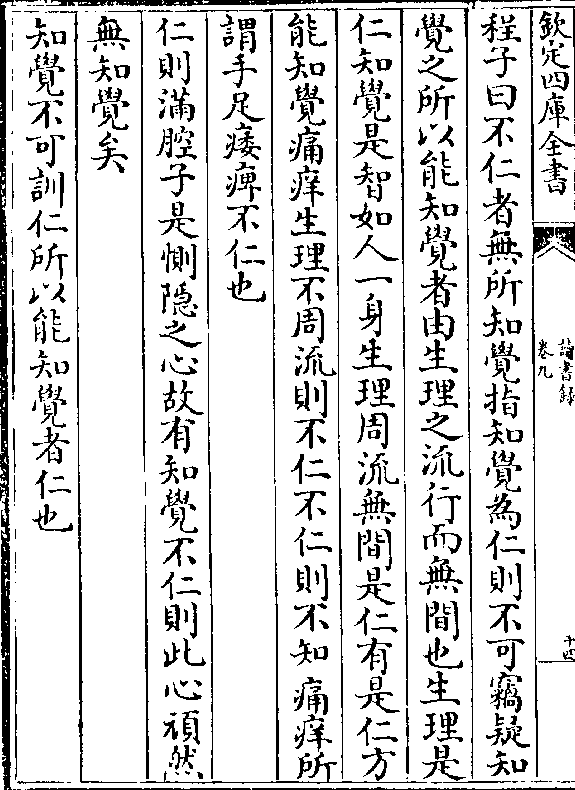 欽定四庫全書
讀書録
卷九
十四
程子曰不仁者無所知覺指知覺為仁則不可竊疑知
覺之所以能知覺者由生理之流行而無間也生理是
仁知覺是智如人一身生理周流無間是仁有是仁方
能知覺痛痒生理不周流則不仁不仁則不知痛痒所
謂手足痿痺不仁也
仁則滿腔子是惻隠之心故有知覺不仁則此心頑然
無知覺矣
知覺不可訓仁所以能知覺者仁也